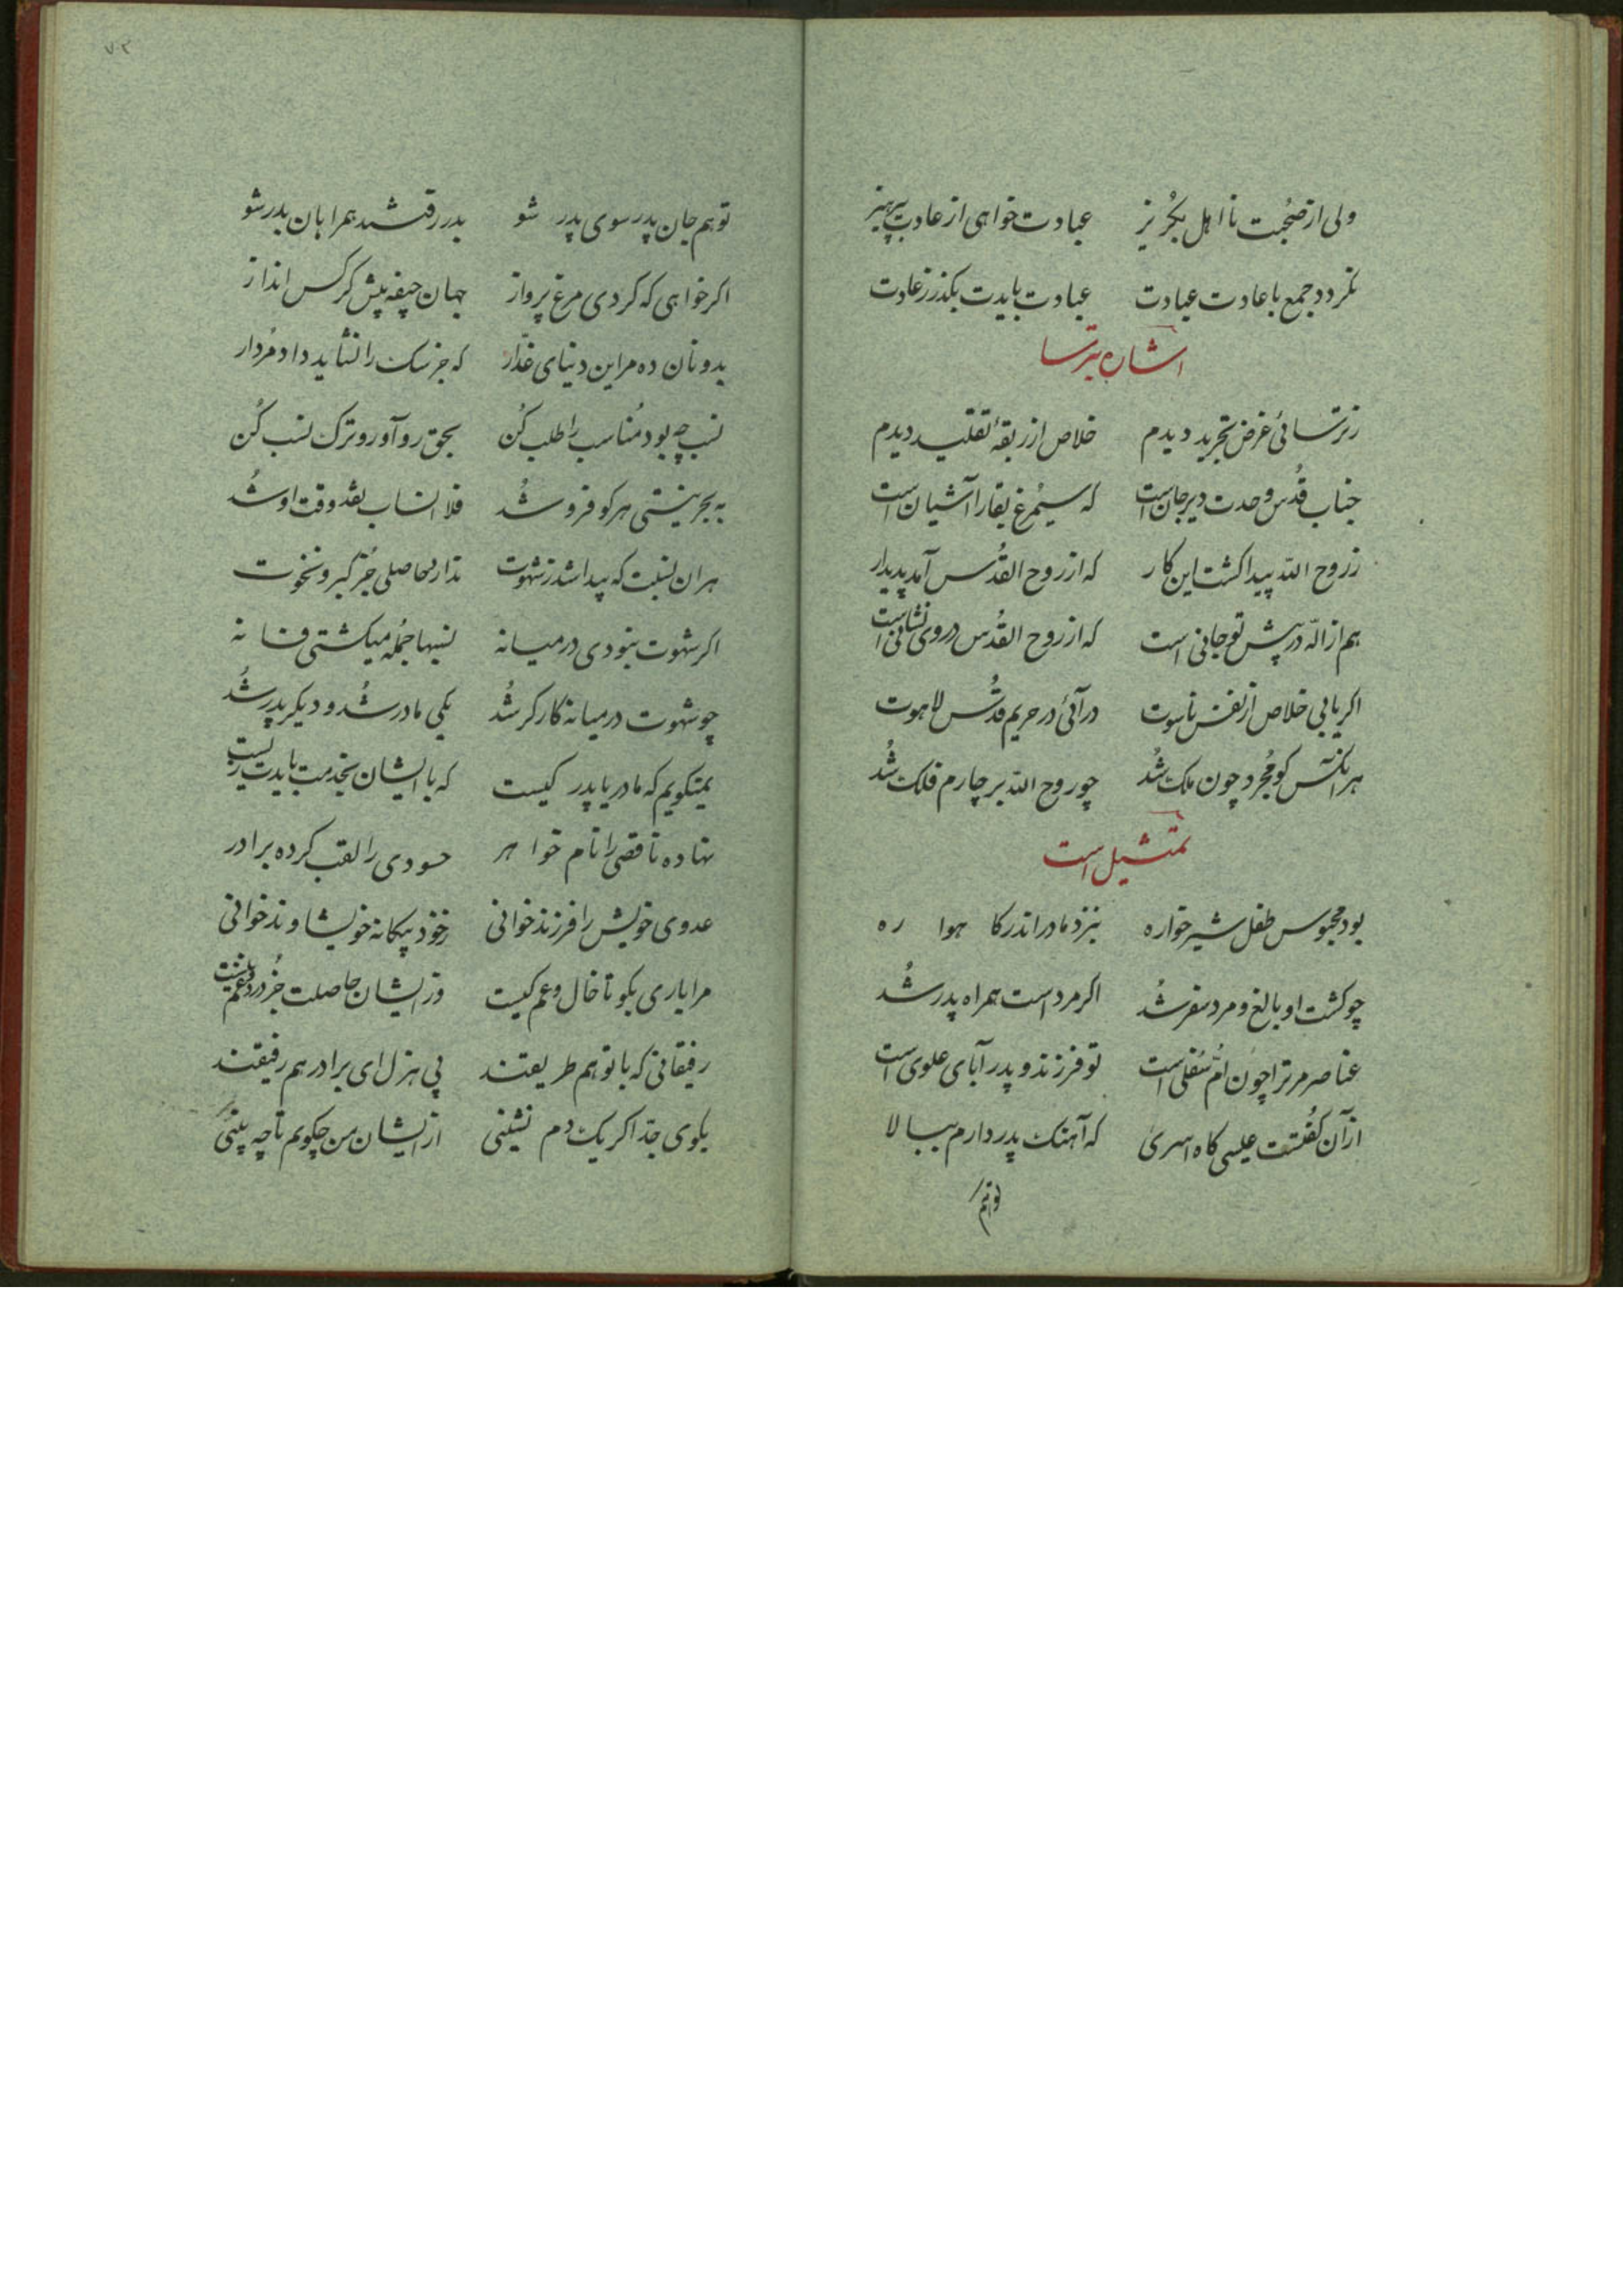 ولی از صحبت نااهل بگریز عبادت خواهی از عادت بپرهیز
نگردد جمع با عادت عبادت عبادت بایدت بگذر ز عادت
اشاره بترسا
ز ترسائی غرض تجرید دیدم خلاص از ربقهٔ تقلید دیدم
جناب قدس وحدت دیر جان است که سیمرغ بقا را آشیان است
ز روح الله پیدا گشت این کار که از روح القدس آمد پدیدار
هم از الله در پیش تو جانی است که از روح القدس در وی نشانی است
اگر یابی خلاص از نفس ناسوت درآئی در حریم قدس لاهوت
هر آنکس کو مجرد چون ملک شد چو روح الله بر چارم فلک شد
تمثیل است
بود محبوس طفل شیرخواره بنزد مادر اندر گاهواره
چو گشت او بالغ و مرد سفر شد اگر مرد است همراه پدر شد
عناصر مر ترا چون امّ سفلی است تو فرزند و پدر آبای علوی است
از آن گفتست عیسی گاه اسری که آهنگ پدر دارم ببالا
تو هم
۷۲
تو هم جان پدر سوی پدر شو بدر رفتند همراهان بدر شو
اگر خواهی که گردی مرغ پرواز جهان جیفه پیش کرکس انداز
بدونان ده مر این دنیای غدّار که جز سگ را نشاید داد مردار
نسب چه بود مناسب را طلب کن بحق رو آور و ترک نسب کن
به بحر نیستی هر کو فرو شد فلا انساب نقد وقت او شد
هر ان نسبت که پیدا شد ز شهوت ندارد حاصلی جز کبر و نخوت
اگر شهوت نبودی در میانه نسبها جمله میگشتی فسانه
چو شهوت در میانه کارگر شد یکی مادر شد و دیگر پدر شد
نمیگویم که مادر یا پدر کیست که با ایشان بخدمت بایدت زیست
نهاده ناقصی را نام خواهر حسودی را لقب کرده برادر
عدوی خویش را فرزند خوانی ز خود بیگانه خویشاوند خوانی
مرا باری بگو تا خال و عم کیست وز ایشان حاصلت جز درد و غم نیست
رفیقانی که با تو هم طریقند پی هزل ای برادر هم رفیقند
بکوی جدّ اگر یک دم نشینی از ایشان من چگویم تا چه بینی